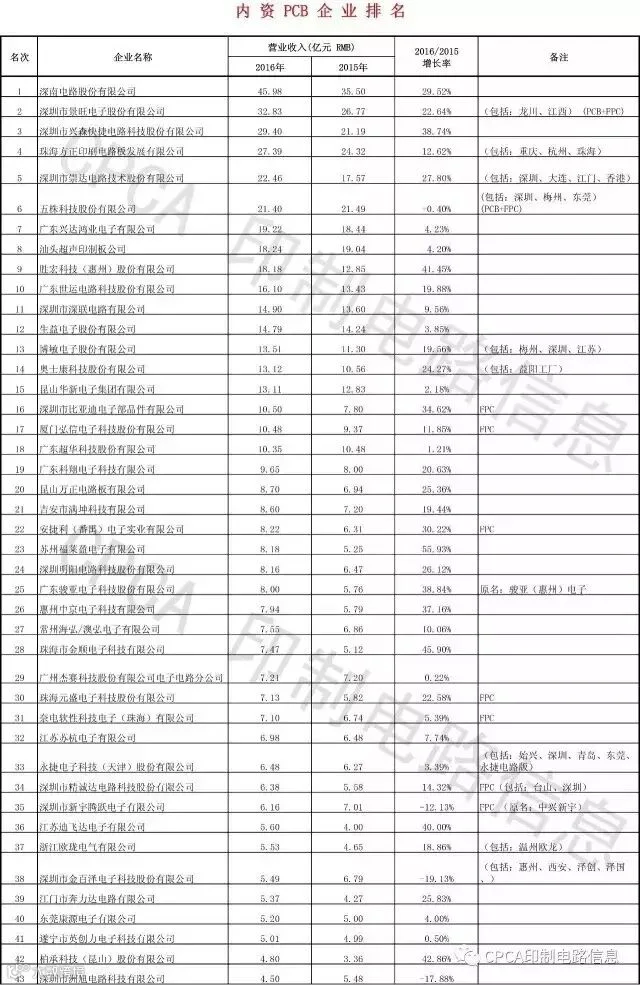 内资PCB企业排名
名次 企业名称 营业收入(亿元 RMB) 2016/2015 增长率 备注
2016年 2015年
1 深南电路股份有限公司 45.98 35.50 29.52%
2 深圳市景旺电子股份有限公司 32.83 26.77 22.64% (包括: 龙川、江西) (PCB+FPC)
3 深圳市兴森快捷电路科技股份有限公司 29.40 21.19 38.74%
4 珠海方正印刷电路板发展有限公司 27.39 24.32 12.62% (包括: 重庆、杭州、珠海)
5 深圳市崇达电路技术股份有限公司 22.46 17.57 27.80% (包括: 深圳、大连、江门、香港)
6 五株科技股份有限公司 21.40 21.49 -0.40% (包括: 深圳、梅州、东莞)
(PCB+FPC)
7 广东兴达鸿业电子有限公司 19.22 18.44 4.23%
8 汕头超声印制板公司 18.24 19.04 4.20%
9 胜宏科技（惠州）股份有限公司 18.18 12.85 41.45%
10 广东世运电路科技股份有限公司 16.10 13.43 19.88%
11 深圳市深联电路有限公司 14.90 13.60 9.56%
12 生益电子股份有限公司 14.79 14.24 3.85%
13 博敏电子股份有限公司 13.51 11.30 19.56% (包括: 梅州、深圳、江苏)
14 奥士康科技股份有限公司 13.12 10.56 24.27% (包括: 益阳工厂)
15 昆山华新电子集团有限公司 13.11 12.83 2.18%
16 深圳市比亚迪电子部品件有限公司 10.50 7.80 34.62% FPC
17 厦门弘信电子科技股份有限公司 10.48 9.37 11.85% FPC
18 广东超华科技股份有限公司 10.35 10.48 1.21%
19 广东科翔电子科技有限公司 9.65 8.00 20.63%
20 昆山万正电路板有限公司 8.70 6.94 25.36%
21 吉安市满坤科技有限公司 8.60 7.20 19.44%
22 安捷利（番禺）电子实业有限公司 8.22 6.31 30.22% FPC
23 苏州福莱盈电子有限公司 8.18 5.25 55.93%
24 深圳明阳电路科技股份有限公司 8.16 6.47 26.12%
25 广东骏亚电子科技股份有限公司 8.00 5.76 38.84% 原名: 骏亚（惠州）电子
26 惠州中京电子科技有限公司 7.94 5.79 37.16%
27 常州海弘/澳弘电子有限公司 7.55 6.86 10.06%
28 珠海市金顺电子科技有限公司 7.47 5.12 45.90%
29 广州杰赛科技股份有限公司电子电路分公司 7.21 7.20 0.22%
30 珠海元盛电子科技股份有限公司 7.13 5.82 22.58% FPC
31 奈电软性科技电子（珠海）有限公司 7.10 6.74 5.39% FPC
32 江苏苏杭电子有限公司 6.98 6.48 7.74%
33 永捷电子科技（天津）股份有限公司 6.48 6.27 3.39% (包括: 始兴、深圳、青岛、东莞、
永捷电路版)
34 深圳市精诚达电路科技股份有限公司 6.38 5.58 14.32% FPC (包括: 台山、深圳)
35 深圳市新宇腾跃电子有限公司 6.16 7.01 -12.13% FPC (原名: 中兴新宇)
36 江苏迪飞达电子有限公司 5.60 4.00 40.00%
37 浙江欧珑电气有限公司 5.53 4.65 18.86% (包括: 温州欧龙)
38 深圳市金百泽电子科技股份有限公司 5.49 6.79 -19.13% (包括: 惠州、西安、泽创、泽国
、)
39 江门市奔力达电路有限公司 5.37 4.27 25.83%
40 东莞康源电子有限公司 5.20 5.00 4.00%
41 遂宁市英创力电子科技有限公司 5.01 4.99 0.50%
42 柏承科技（昆山）股份有限公司 4.80 3.36 42.86%
43 深圳市洲旭电路科技有限公司 4.50 5.48 -17.88%
CPCA 印制电路信息
CPCA 印制电路信息
CPCA印制电路信息